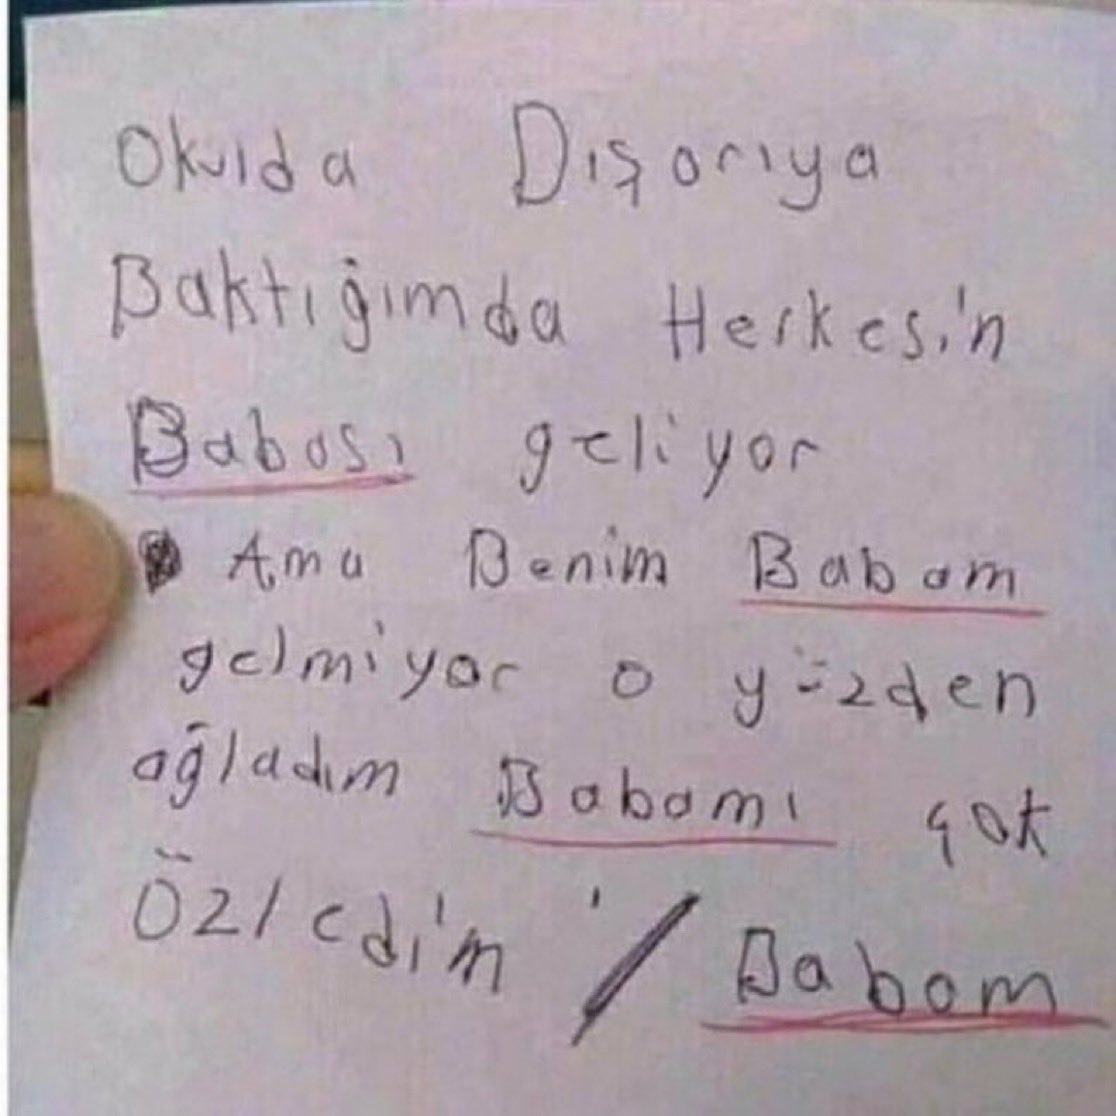 Okulda Dışarıya
Baktığımda Herkesin
Babası geliyor
Ama Benim Babam
gelmiyor o yüzden
ağladım Babamı çok
Özledim / Babam